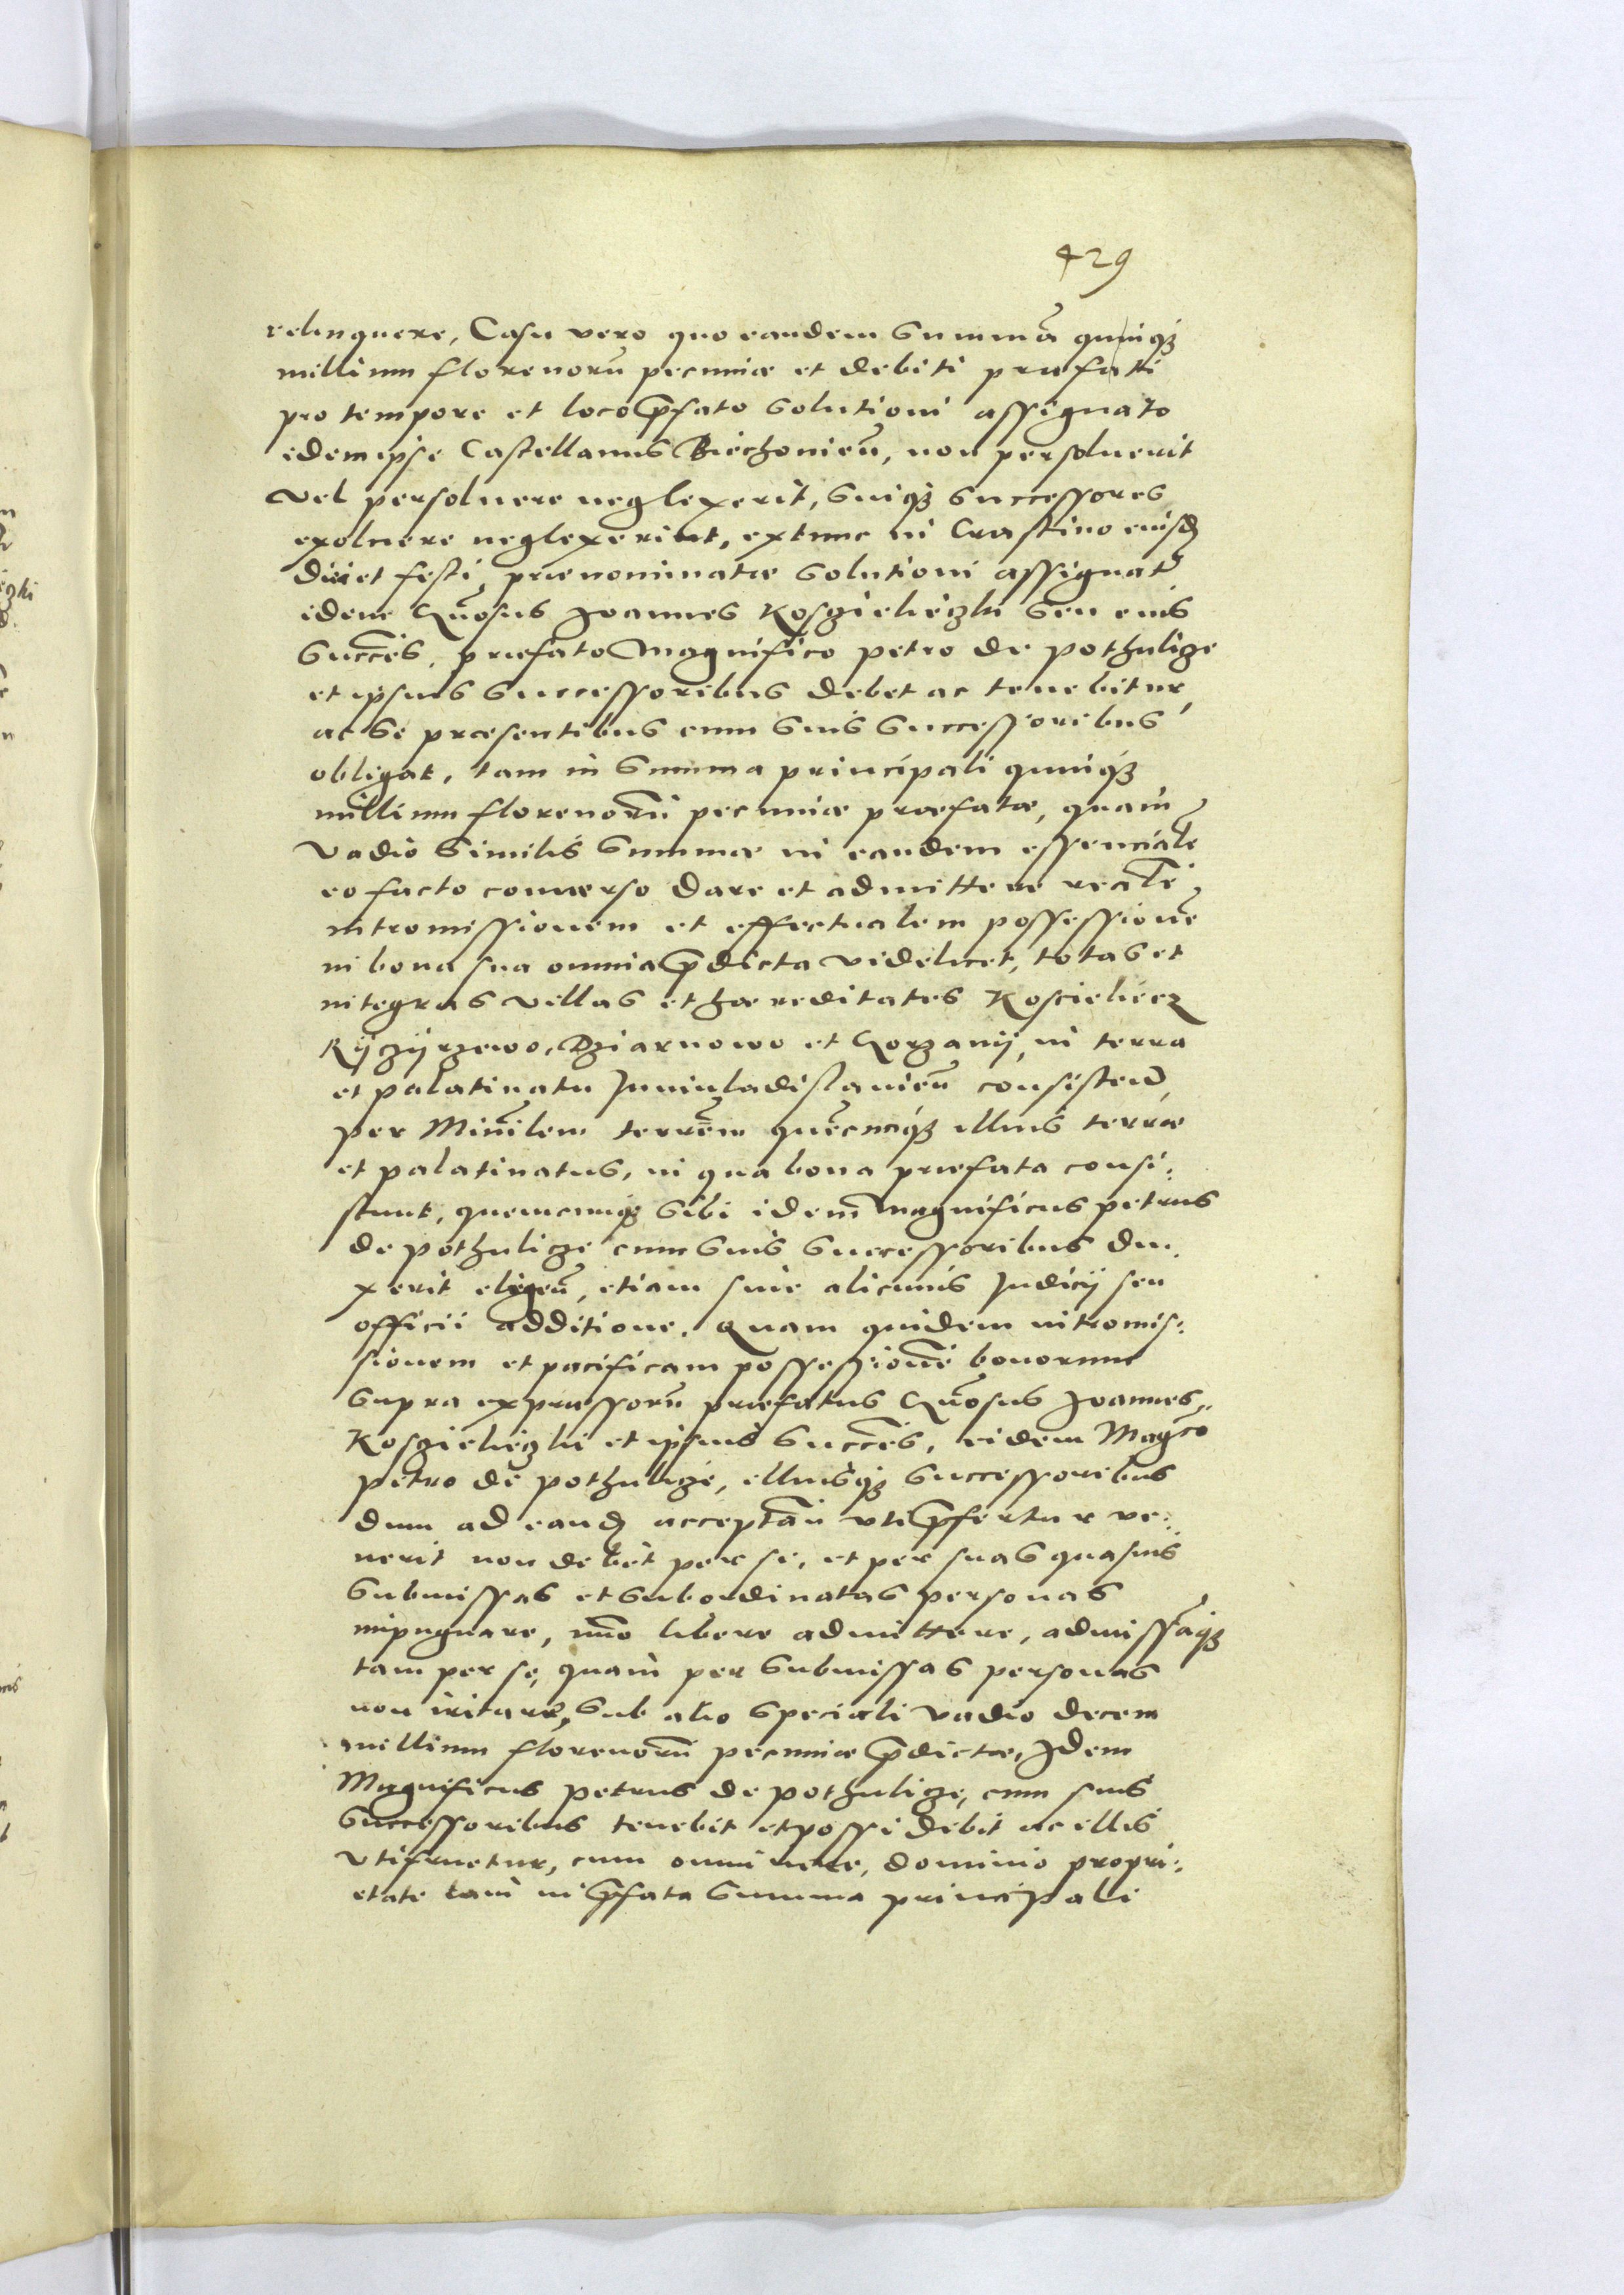 429
relinquere, Casu vero quo eandem Summã quinqz
millium florenorũ pecuniæ et debiti præfati
pro tempore et loco p̃fato Solutioni assignato
idem ipse Castellanus Biechouieñ, non persoluerit
vel persoluere neglexerit, Suiqz Successores
exoluere neglexerint, extunc in Crastino eiusd
diei et festi, prænominatæ Solutioni assignat
idem Gñosus Joannes Kosczieliczki Seu eius
Succẽs, præfato Magnifico Petro de Pothulicze
et ipsius Successoribus debet ac tenebitur,
ac Se præsentibus cum Suis Successoribus
obligat, tam in Summa principali quinqz
millium florenorũ pecuniæ præfatæ, quam
vadio Similis Summæ in eandem essenciale
eo facto conuerso dare et admittere realẽ
intromissionem et effectualem possessionẽ
in bona sua omnia p̃dicta videlicet, totas et
integras villas et hæreditates Koscielecz
Rÿczÿrzewo, Dziarnowo et Gorzanÿ, in terra
et palatinatu Juniuladislauieñ consisteñ,
per Minĩlem terrẽm quẽcunqz illius terræ
et palatinatus, in qua bona præfata consi:
stunt, quemcunqz Sibi idem Magnificus Petrus
de Pothulicze cum Suis Successoribus du:
xerit eligeñ, etiam sine alicuius Judicij seu
officii additione. Quam quidem intromis:
sionem et pacificam possessionẽ bonorum
Supra expressorũ præfatus Gñosus Joannes
Kosczieliczki et ipsius Succẽs, eidem Magco
Petro de Pothulicze, illiusqz Successoribus
dum ad eand acceptañ vti p̃fertur ve:
nerit non debet per se, et per suas quasuis
Submissas et Subordinatas personas
impugnare, imo libere admittere, admissãqz
tam per se, quam per Submissas personas
non iritare, Sub alio Speciali vadio decem
millium florenorũ pecuniæ p̃dictæ, Idem
Magnificus Petrus de Pothulicze, cum suis
Successoribus tenebit et possidebit ac illis
vtifruetur, cum omni iure, dominio propri:
etate tam in p̃fata Summa principali